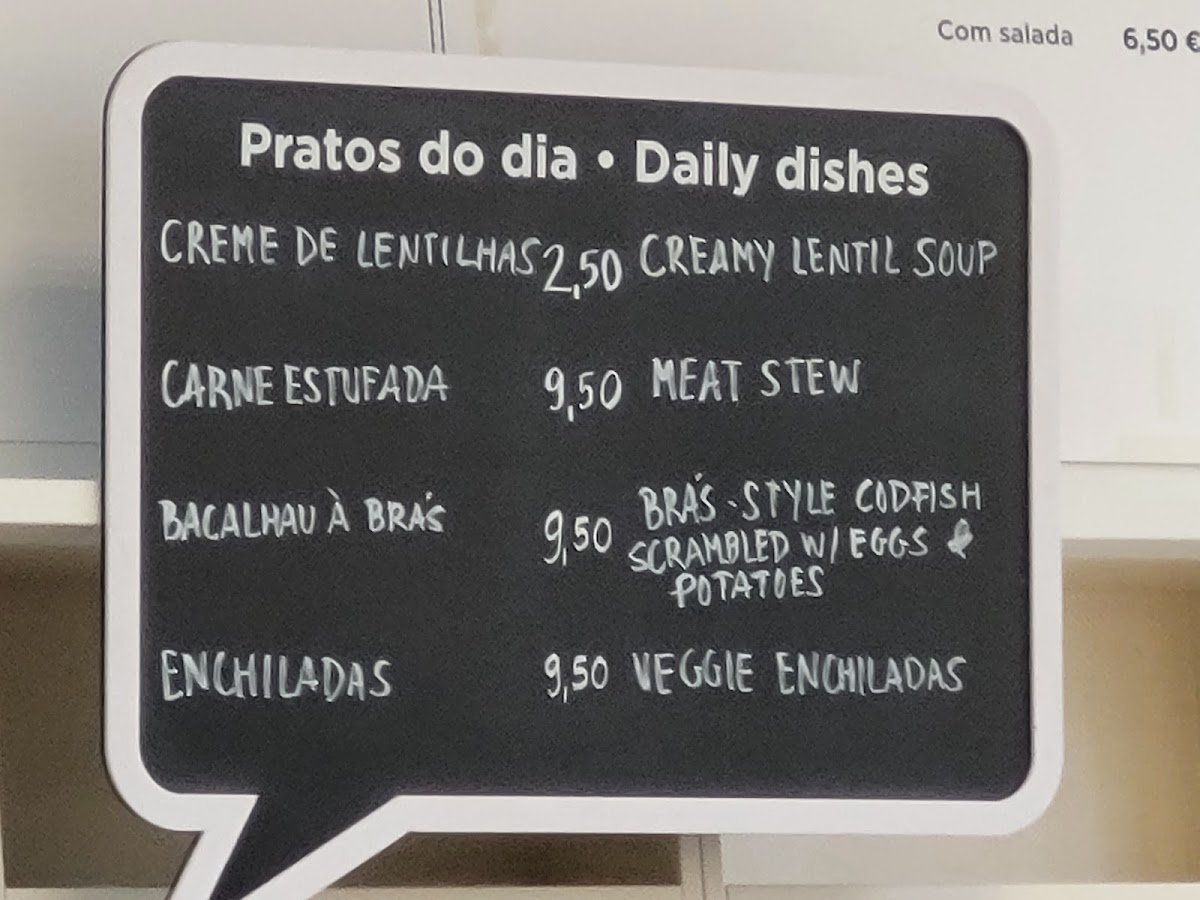 Com salada 6,50 €
Pratos do dia • Daily dishes
CREME DE LENTILHAS 2,50 CREAMY LENTIL SOUP
CARNE ESTUFADA 9,50 MEAT STEW
BACALHAU À BRÁS 9,50 BRÁS-STYLE CODFISH
SCRAMBLED W/ EGGS &
POTATOES
ENCHILADAS 9,50 VEGGIE ENCHILADAS